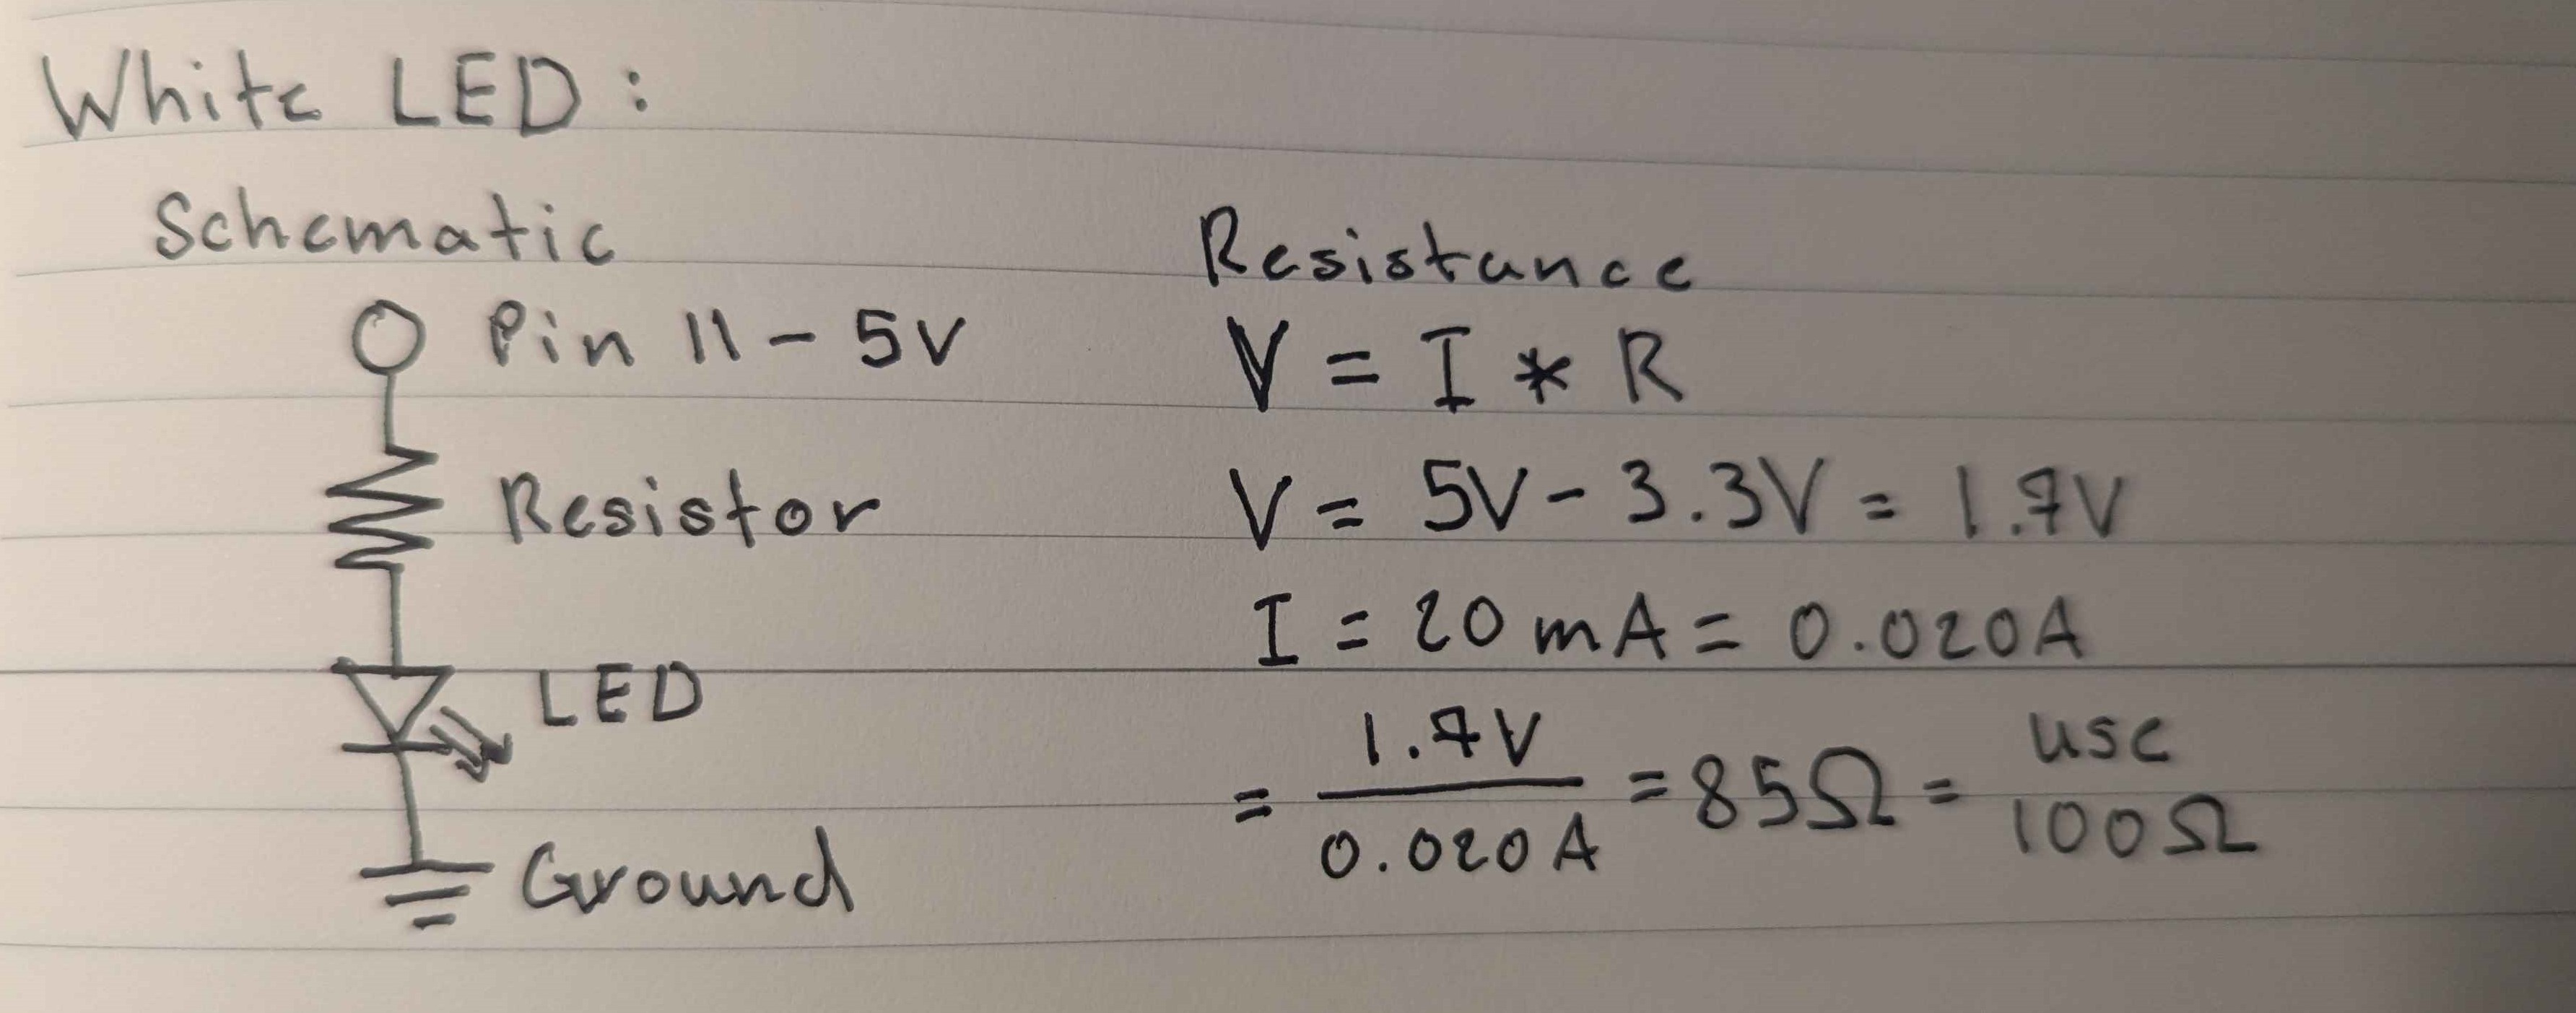 White LED:
Schematic
Pin 11 - 5V
Resistor
LED
Ground
Resistance
V = I * R
V = 5V - 3.3V = 1.7V
I = 20 mA = 0.020A
= 1.7V / 0.020A = 85Ω = use 100Ω